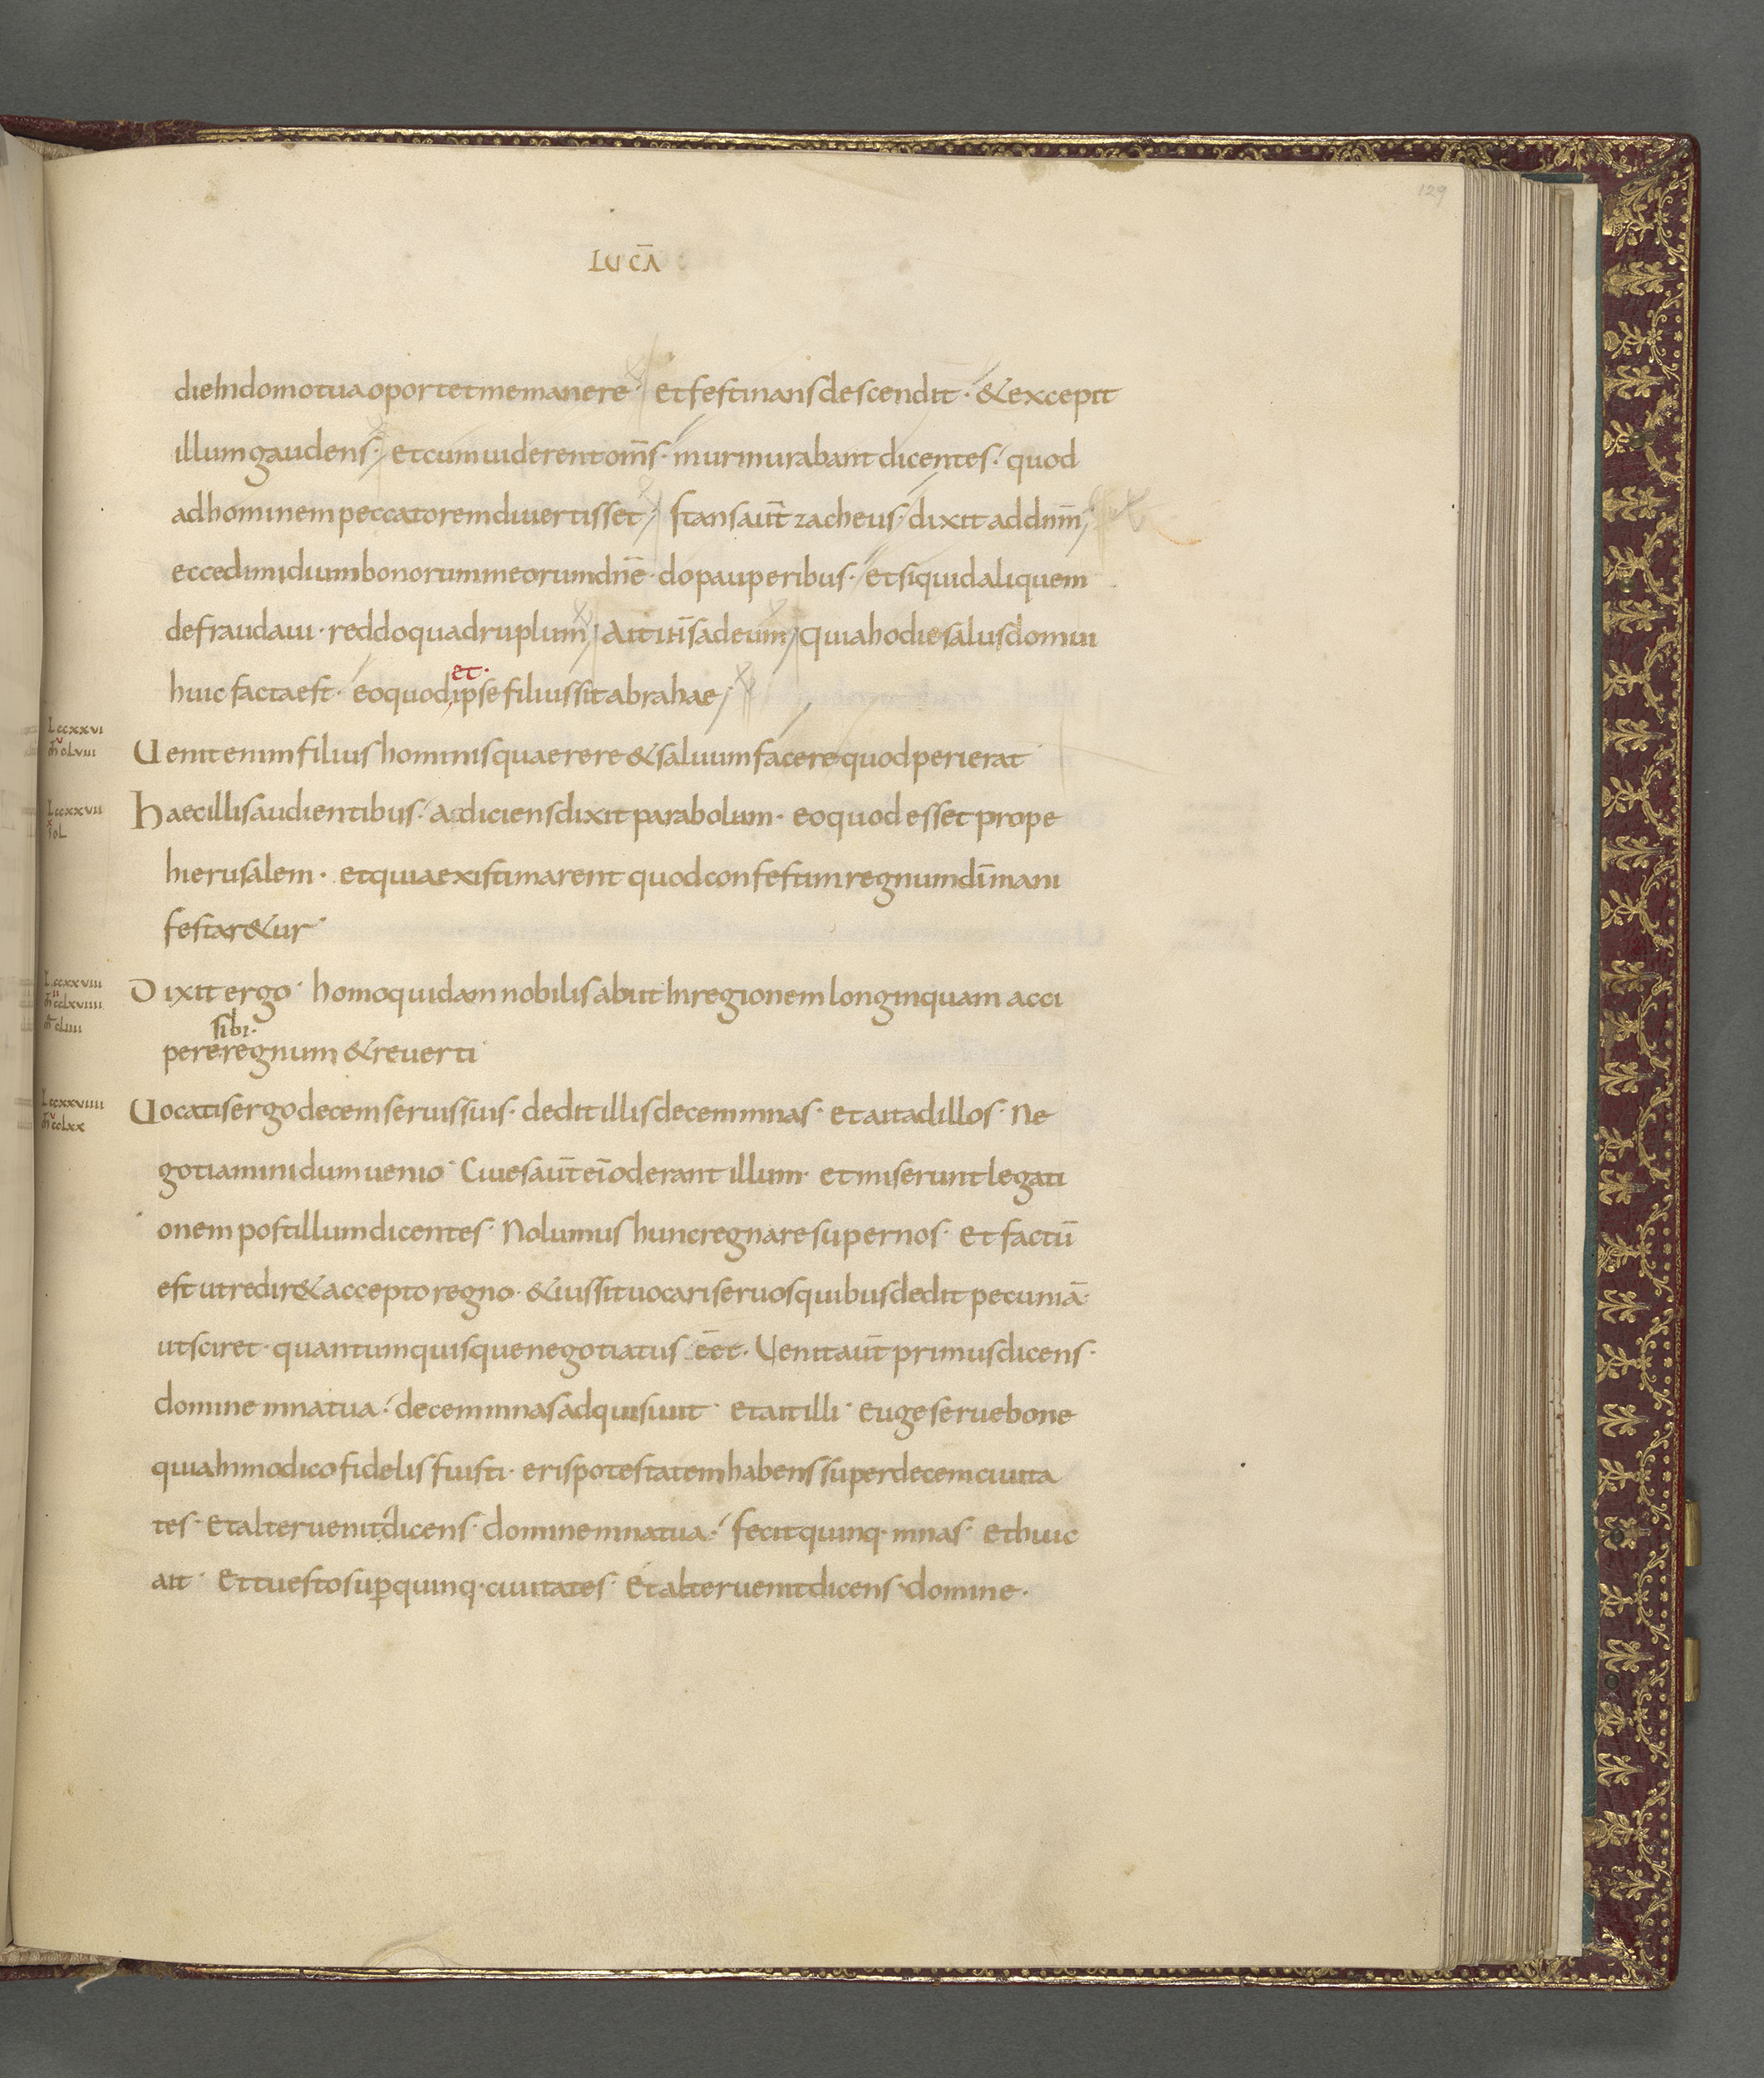 129
LUCĀ
die In domo tua oportet me manere · et festinans descendit · & excepit
illum gaudens · et cum uiderent om̄s · murmurabant dicentes · quod
ad hominem peccatorem diuertisset / stans aut̄ zacheus · dixit ad dnm̄
ecce dimidium bonorum meorum dn̄e · do pauperibus · et si quid aliquem
defraudaui · reddo quadruplum / Ait ih̄s ad eum / quia hodie salus domui
et·
huic facta est · eo quod ipse filius sit abrahae
Lccxxvi
Uenit enim filius hominis quaerere & saluum facere quod perierat
Lccxxvii
Haec illis audientibus · adiciens dixit parabolam · eo quod esset prope
hierusalem · et quia existimarent quod confestim regnum dī mani
festar&ur
Lccxxviii
Dixit ergo · homo quidam nobilis abiit In regionem longinquam acci
sibi·
pere regnum & reuerti
Lccxxviiii
Uocatis ergo decem seruis suis · dedit illis decem mnas · et ait ad illos · Ne
gotiamini dum uenio · Ciues aut̄ eī oderant illum · et miserunt legati
onem post illum dicentes · Nolumus hunc regnare super nos · et factū
est ut redir& accepto regno · & iussit uocari seruos quibus dedit pecuniā ·
ut sciret · quantum quisque negotiatus ēet · Uenit aut̄ primus dicens ·
domine mna tua · decem mnas adquisiuit · et ait illi · euge serue bone
quia In modico fidelis fuisti · eris potestatem habens super decem ciuita
tes · Et alter uenit dicens · domine mna tua · fecit quinq· mnas · et huic
ait · Et tu esto sup̱ quinq· ciuitates · Et alter uenit dicens · domine ·